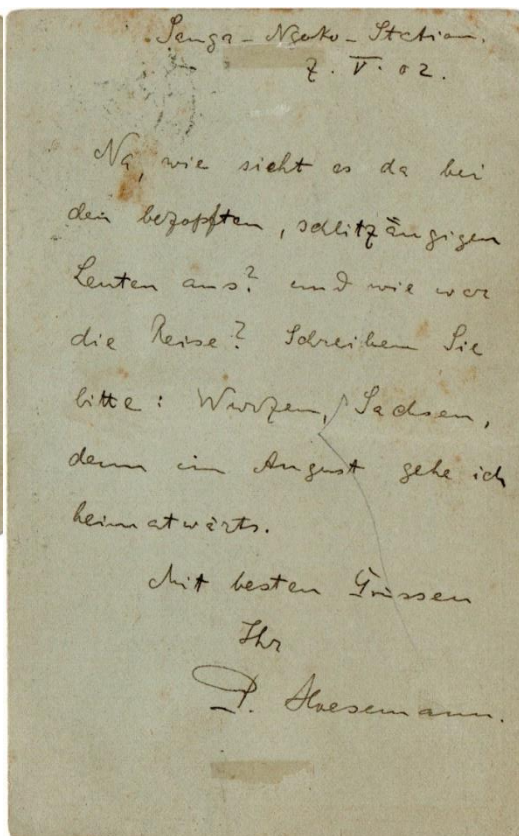 Sanga-Ngoko-Station.
7. V. 02.
Na, wie sieht es da bei
den bezopften, schlitzäugigen
Leuten aus? und wie war
die Reise? Schreiben Sie
bitte: Wurzen, Sachsen,
denn im August gehe ich
heimatwärts.
Mit besten Grüssen
Ihr
P. Hoesemann.